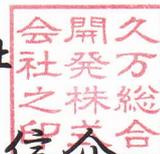 久万総合
開発株式
会社之印